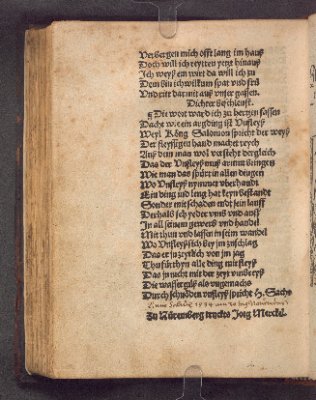 Verbergen mich offt lang im hauß
Doch will ich reytten yetzt hinauß
Ich weyß ein wirt da will ich zu
Dem bin ich wilkum spat vnd fru
Vnd rit darmit auß vnser gassen.
Dichter Beschleust.
Die wort ward ich zu hertzen fassen
Dacht wie ein ding ist Vnfleyß
Weyl König Salomon spricht der weyß
Der fleyssigen hand machet reych
Auß dem man wol versteht der gleich
Das der Vnfleyß muß armut bringen
Wie man das spürt in allen dingen
Wo Vnfleyß nymmet vberhandt
Ein ding vnd leng hat kein bestandt
Sonder mit schaden endt sein lauff
Derhalb sich yeder vnd auff
In all seinem gewerb vnd handel
Mit thun vnd lassen in seim wandel
Wo Vnfleyß sich bey jm zuschlag
Das er zeytlich von jm jag
Thu fürthyn alle ding mit fleyß
Das jn nicht mit der zeyt vnfleyß
Die wasser güß als vngemachs
Durch schulden vnfleyß spricht H. Sachs
Zu Nürenberg truckts Jörg Merckel.